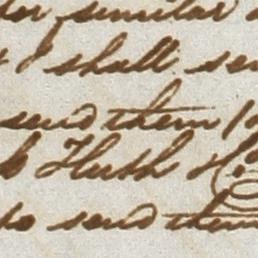 similar
I shall sen
send them
Huth
to send them